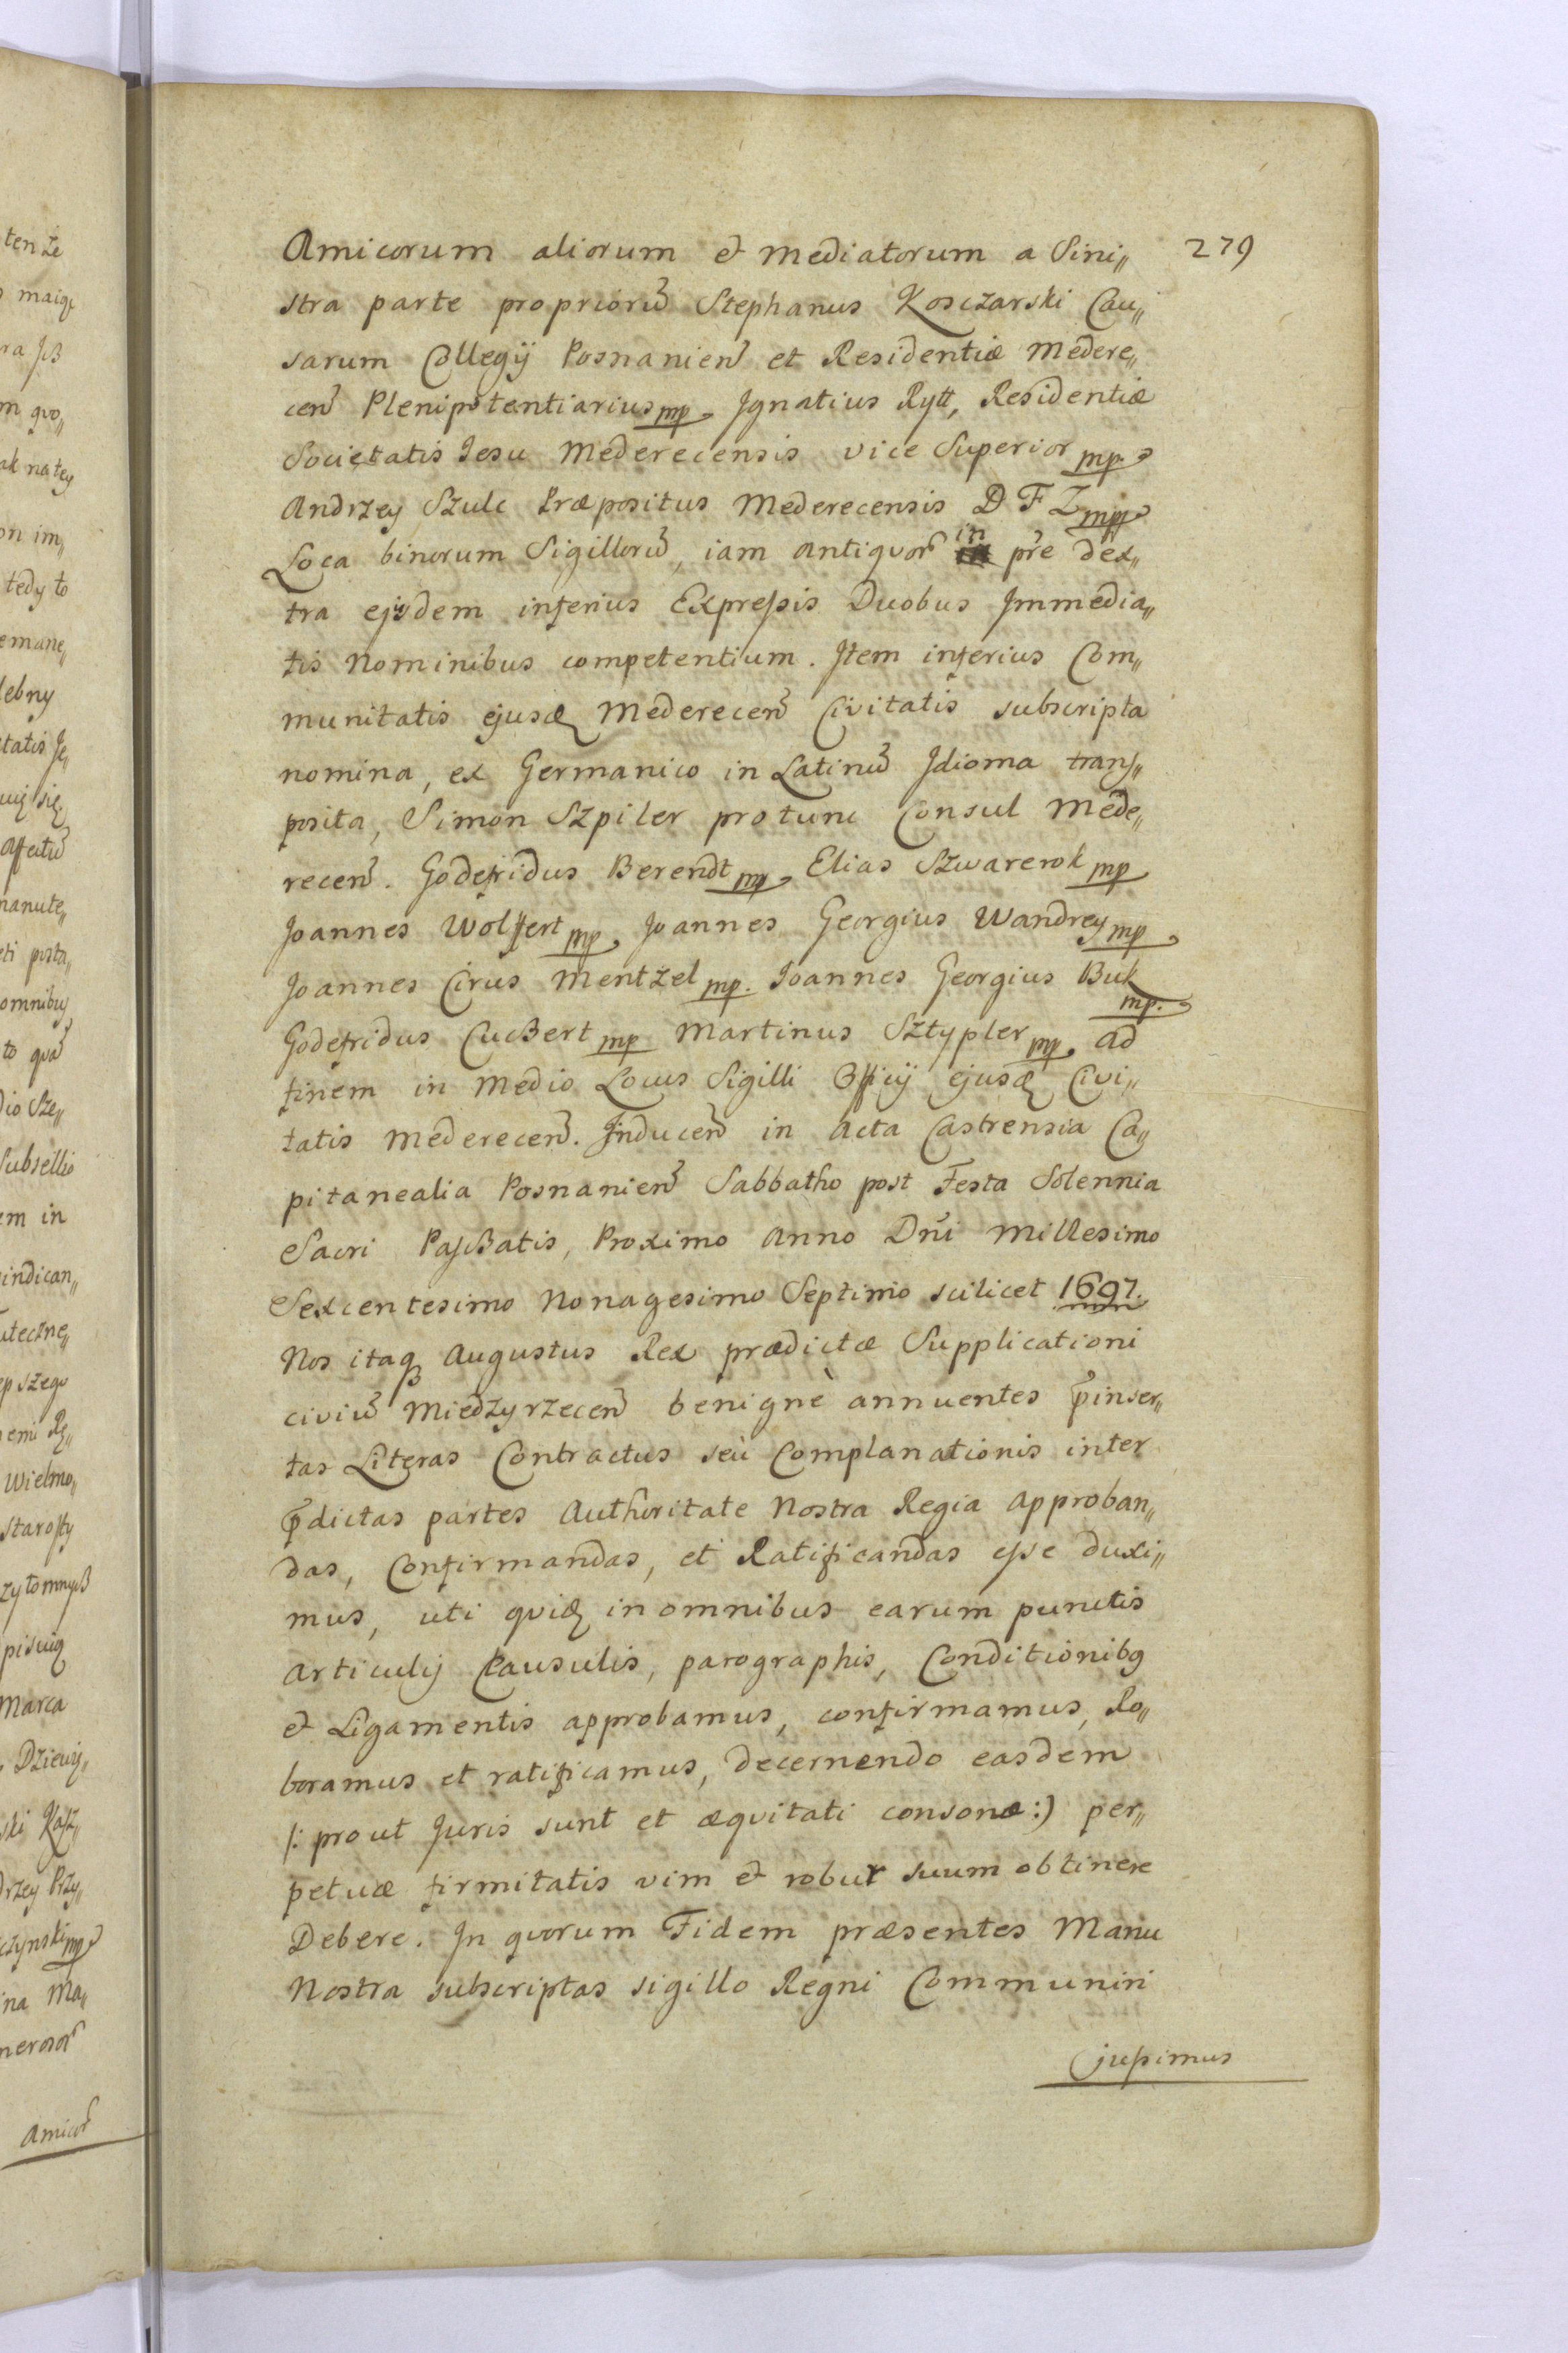 Amicorum aliorum et Mediatorum a Sini„ 279
stra parte proprioru̅ Stephanus Kosczarski Cau„
sarum Collegij Posnanien̅ et Residentiæ Medere„
cen̅ Plenipotentiarius mp Ignatius Rytt, Residentiæ
Societatis Iesu Mederecensis vice Superior mp.
Andrzey Szulc Præpositus Mederecensis D F Z mpp
Loca binorum Sigilloru̅, iam antiquor̅ in pr̅e dex„
tra ejusdem inferius Expressis Duobus Immedia„
tis Nominibus competentium. Item inferius Com„
munitatis ejusdę Mederecen̅ Civitatis subscripta
nomina, ex Germanico in Latinu̅ Idioma trans„
posita, Simon Szpiler protunc Consul Mede„
recen̅. Godefridus Berendt mp Elias Szwarerok mp
Joannes Wolffert mp, Joannes Georgius Wandrey mp
Joannes Cirus Mentzel mp. Ioannes Georgius Buk
mp.
Godefridus Cuchert mp Martinus Sztypler mp. ad
finem in Medio Locus Sigilli Officij ejusdę Civi„
tatis Mederecen̅. Inducen̅ in Acta Castrensia Ca„
pitanealia Posnanien̅ Sabbatho post Festa Solennia
Sacri Paschatis, Proximo Anno Dn̅i Millesimo
Sexcentesimo Nonagesimo Septimo scilicet 1697.
Nos itaq Augustus Rex prædictæ Supplicationi
civiu̅ Miedzyrzecen̅ benignè annuentes p̅inser„
tas Literas Contractus seù Complanationis inter
p̅dictas partes Authoritate Nostra Regia Approban„
das, Confirmandas, et Ratificandas esse duxi„
mus, uti quidę in omnibus earum punctis
articulis Clausulis, parographis, Conditionibg
et Ligamentis approbamus, confirmamus, Ro„
boramus et ratificamus, decernendo easdem
/: prout Juris sunt et æquitati consonæ :) per„
petuæ firmitatis vim et robur suum obtinere
Debere. In quorum Fidem præsentes Manu
Nostra subscriptas sigillo Regni Communiri
jussimus